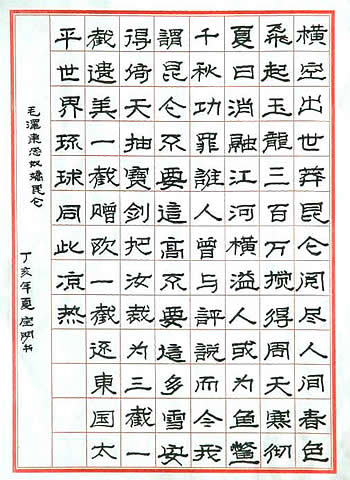 橫空出世莽昆仑阅尽人间春色
飛起玉龍三百万搅得周天寒彻
夏日消融江河橫溢人或为鱼鳖
千秋功罪誰人曾与評説而今我
謂昆仑不要這高不要這多雪安
得倚天抽寶剑把汝裁为三截一
截遗美一截赠欧一截还東国太
平世界琉球同此凉热
毛澤東念奴嬌昆仑
丁亥年夏空明书